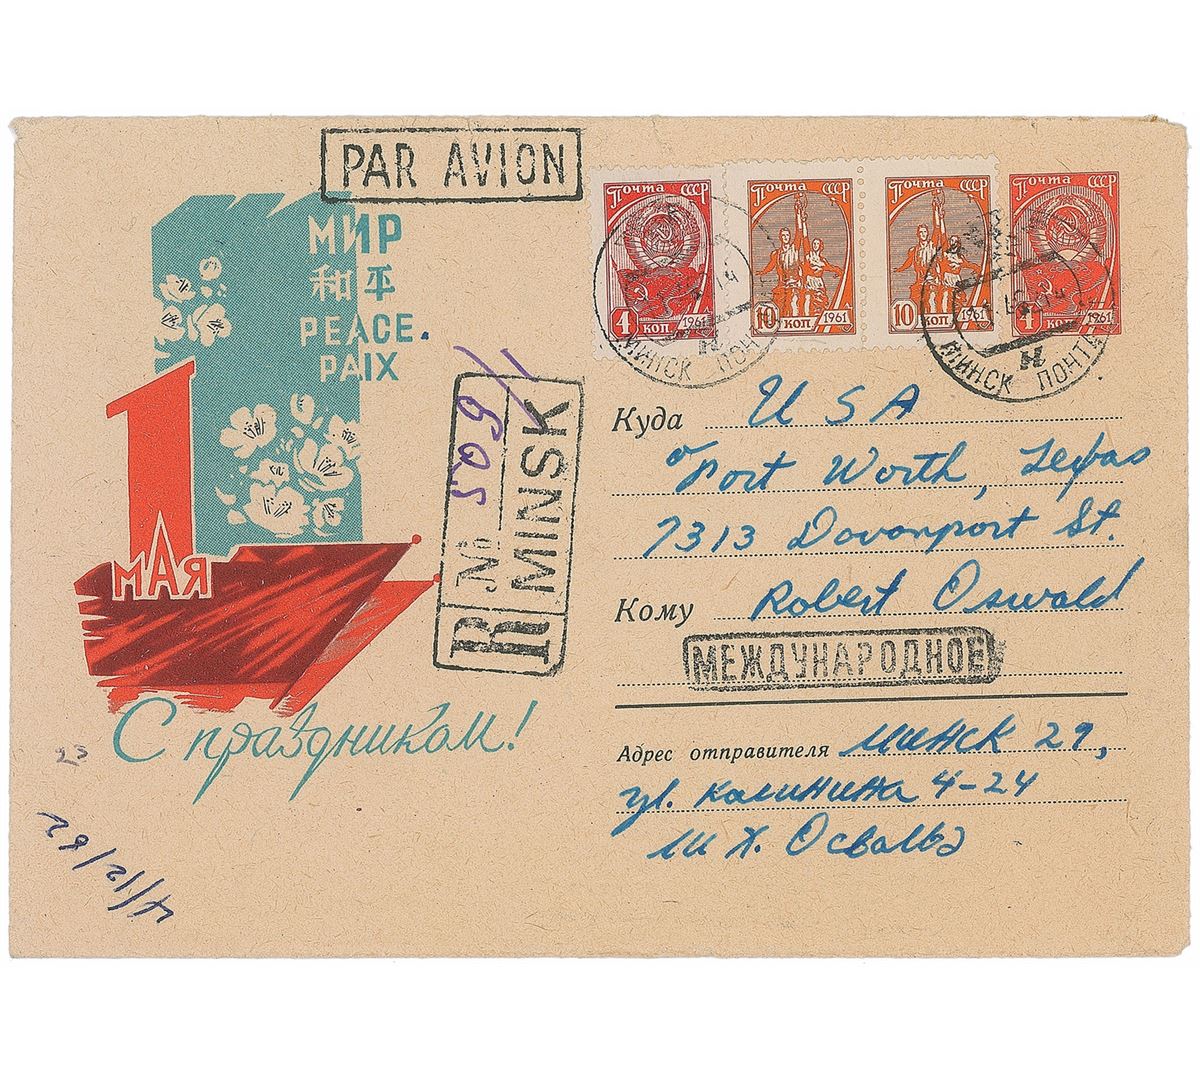 PAR AVION
МИР
和平
PEACE
PAIX
1
МАЯ
С праздником!
R MINSK
№ 605
ПОЧТА СССР
4 КОП 1961
ПОЧТА СССР
10 КОП 1961
ПОЧТА СССР
10 КОП 1961
ПОЧТА СССР
4 КОП 1961
МИНСК ПОЧТ
Н
МИНСК ПОЧТА
Н
Куда USA
Fort Worth, Texas
7313 Davenport St.
Кому Robert Oswald
МЕЖДУНАРОДНОЕ
Адрес отправителя Минск 29,
ул. Калинина 4-24
Ли Х. Освальд
23
4/12/62